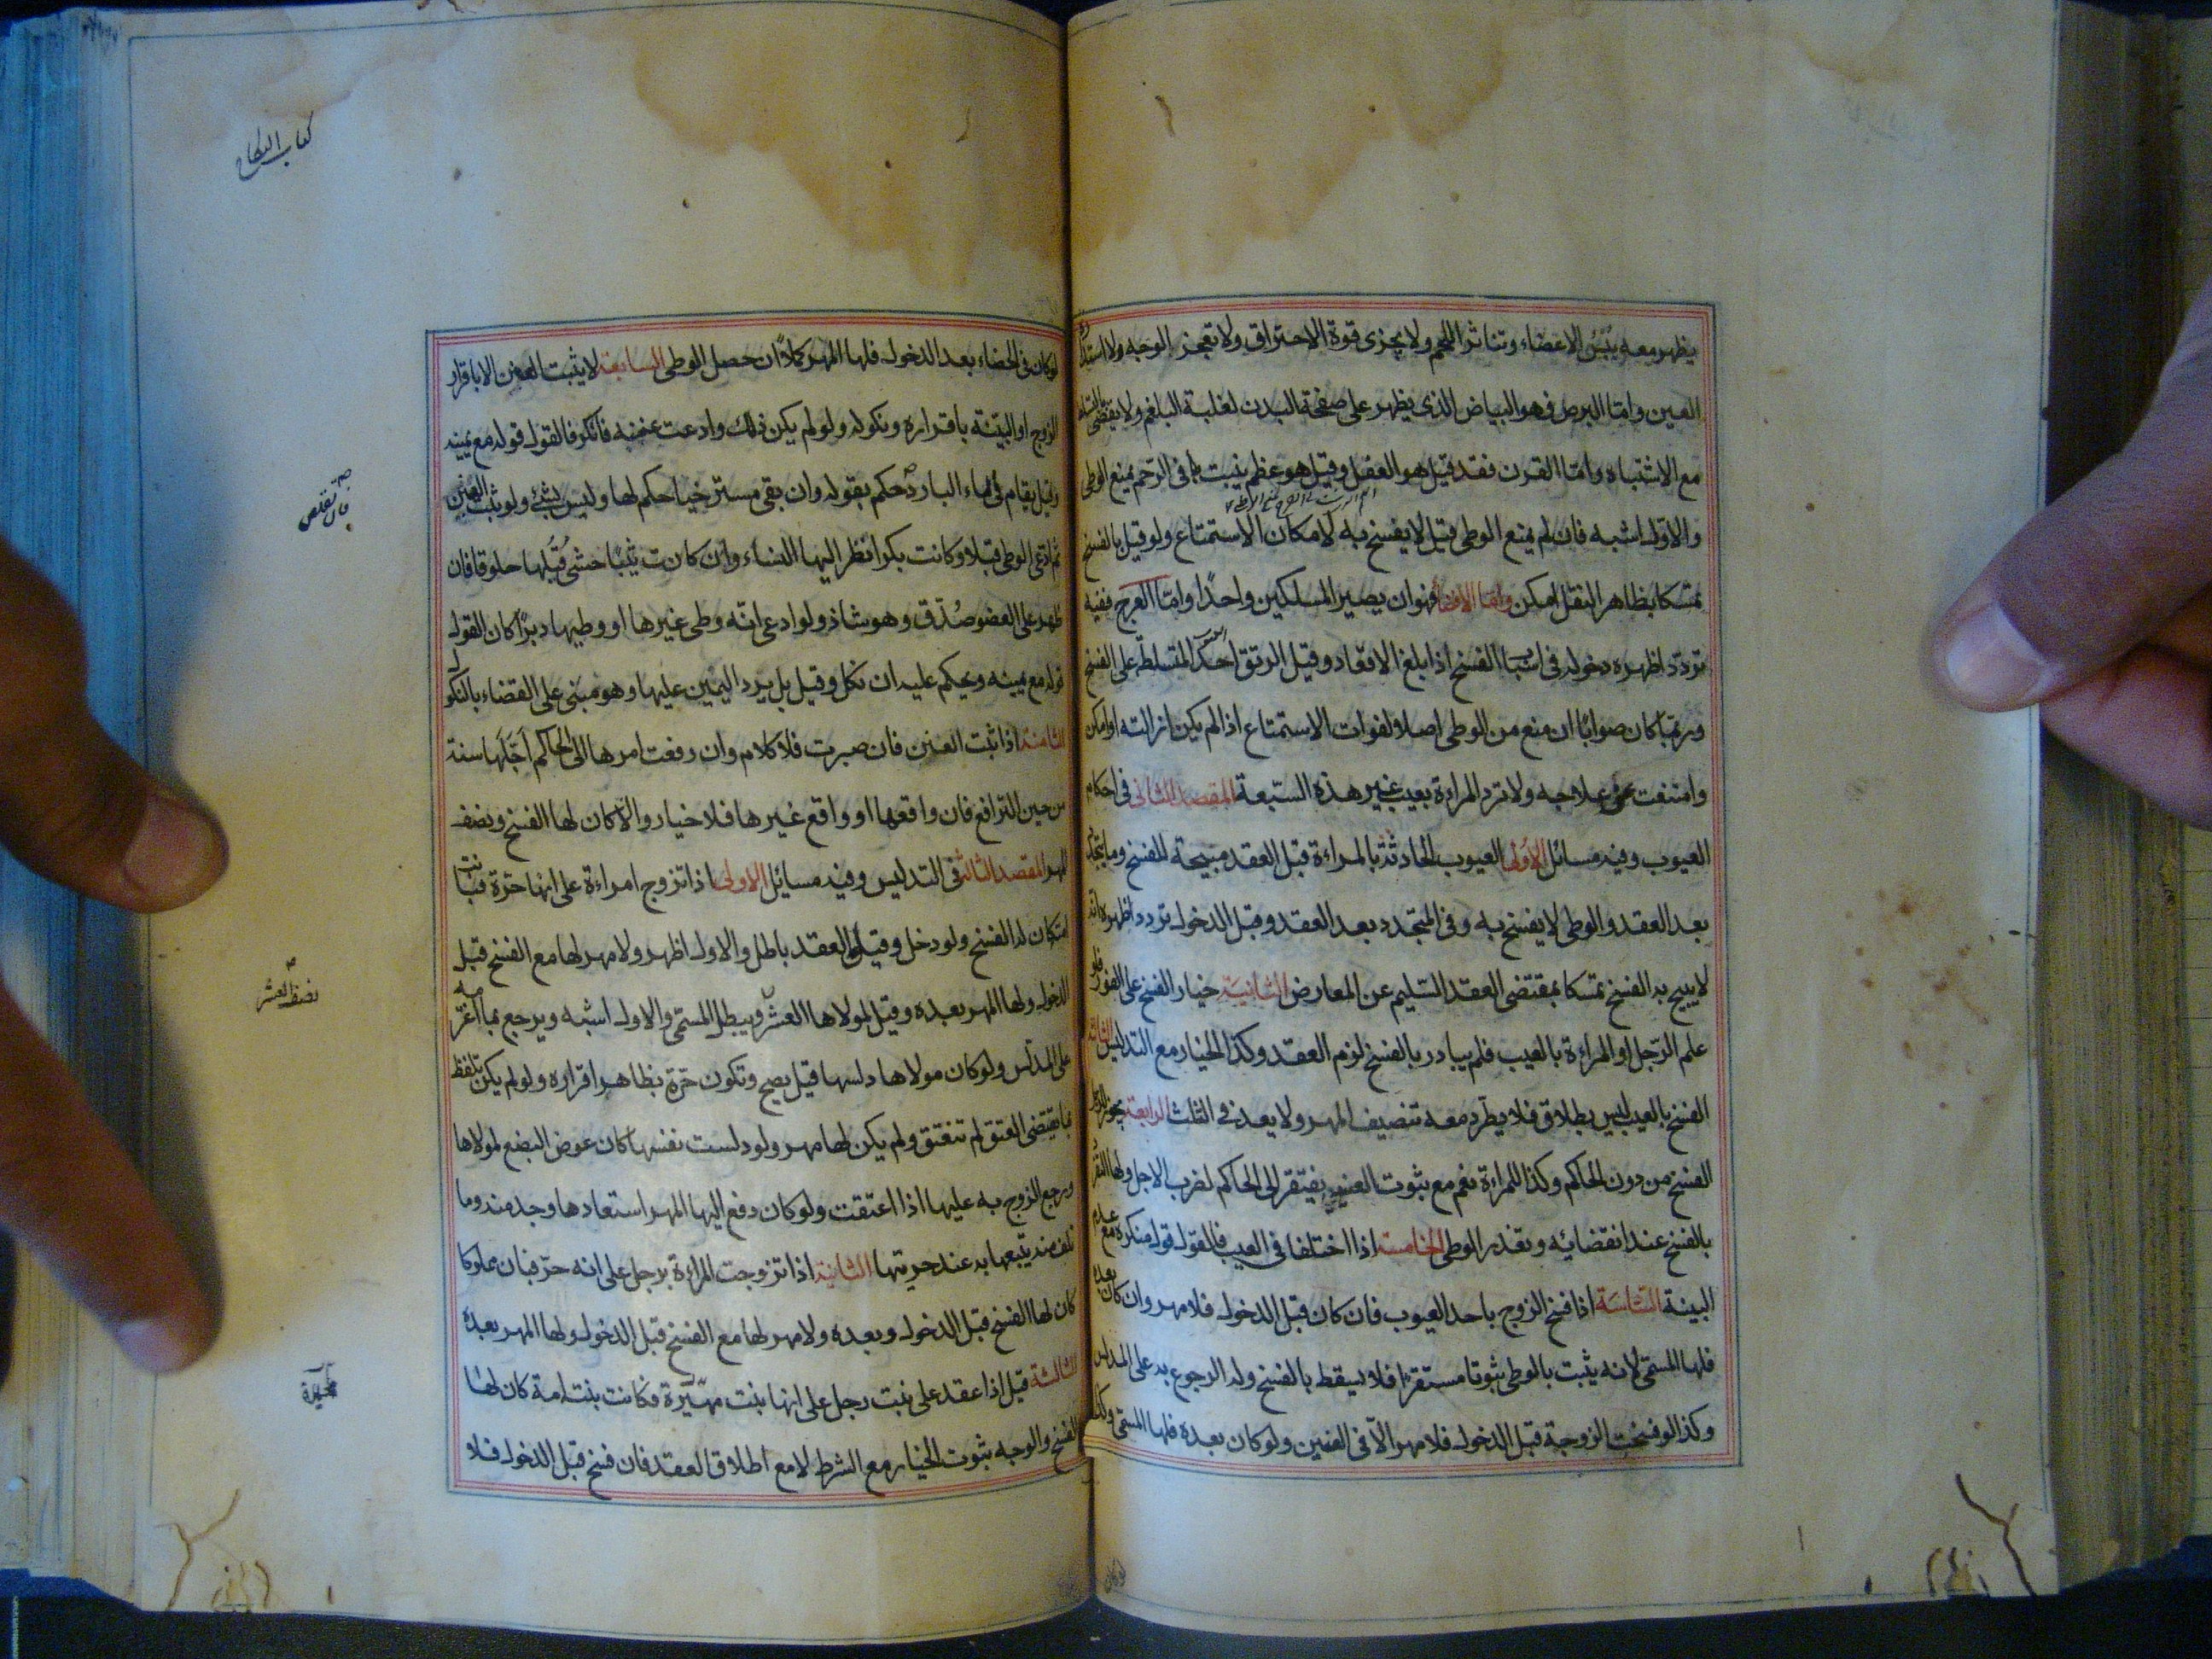 يظهر معه يبس الاعضاء وتناثر اللحم ولا يجزى قوة الاحتراق ولا تعجز الوجه ولا استدارة
العين وامّا البرص فهو البياض الذى يظهر على صفحة البدن لغلبة البلغم ولا يقضى بالتسلط
مع الاشتباه وامّا القرن فقد قيل هو العفل وقيل هو عظم ينبت فى الرّحم يمنع الوطى
والاوّل اشبه فان لم يمنع الوطى قيل لا يفسخ به لامكان الاستمتاع ولو قيل بالفسخ
تمسّكا بظاهر النقل امكن وامّا الافضاء فهو ان يصير المسلكين واحدًا وامّا العرج ففيه
تردّد اظهره دخوله فى اسباب الفسخ اذا بلغ الاقعاد وقيل الرتق احد العيوب المتسلطة على الفسخ
وربّما كان صوابًا ان منع من الوطى اصلا لفوات الاستمتاع اذا لم يكن ازالته او امكن
وامتنعت عن علاجه ولا ترد المراءة بعيب غير هذه السّبعة المقصد الثانى فى احكام
العيوب وفيه مسائل الاولى العيوب الحادثة بالمراءة قبل العقد مبيحة للفسخ وما يتجدّد
بعد العقد والوطى لا يفسخ به وفى المتجدد بعد العقد وقبل الدخول تردد اظهره انه
لا يبيح به الفسخ تمسّكا بمقتضى العقد السّليم عن المعارض الثانية خيار الفسخ على الفور فلو
علم الرّجل او المراءة بالعيب فلم يبادر بالفسخ لزم العقد وكذا الخيار مع التدليس الثالثة
الفسخ بالعيب ليس بطلاق فلا يطّرد معه تنصيف المهر ولا يعد فى الثلث الرابعة يجوز للرجل
الفسخ من دون الحاكم وكذا للمراءة نعم مع ثبوت العنن يفتقر الى الحاكم لضرب الاجل ولها التفرد
بالفسخ عند انقضائه وتعذر الوطى الخامسة اذا اختلفا فى العيب فالقول قول منكره مع عدم
البينة السّادسة اذا فسخ الزوج باحد العيوب فان كان قبل الدخول فلا مهر وان كان بعده
فلها المسمّى لانه يثبت بالوطى ثبوتا مستقرا فلا يسقط بالفسخ وله الرجوع به على المدلس
وكذا لو فسخت الزوجة قبل الدخول فلا مهر الّا فى العنين ولو كان بعده فلها المسمّى وكذا
لو كان
كتاب النكاح
لو كان فى الخصاء بعد الدخول فلها المهر كملًا ان حصل الوطى السابعة لا يثبت العنن الا باقرار
الزوج او البيّنة باقراره ونكوله ولو لم يكن ذلك وادعت عننه فانكر فالقول قوله مع يمينه
وقيل يقام فى الماء البارد حكم بقوله وان بقى مسترخيا حكم لها وليس بشئ ولو ثبت العنن
فان تقلص
ثم ادّعى الوطى قبلا وكانت بكرا نظر اليها النساء وان كانت ثيّبًا حشى قُبلها خلوقا فان
ظهر على العضو صُدّق وهو شاذ ولو ادعى انّه وطى غيرها او وطيها دبرًا كان القول
قوله مع يمينه ويحكم عليه ان نكل وقيل بل يرد اليمين عليها وهو مبنى على القضاء بالنكول
الثامنة اذا ثبت العنن فان صبرت فلا كلام وان رفعت امرها الى الحاكم اجّلها سنة
من حين الترافع فان واقعها او واقع غيرها فلا خيار والّا كان لها الفسخ ونصف
المهر المقصد الثالث فى التدليس وفيه مسائل الاولى اذا تزوج امراءة على انها حرّة فبانت
امة كان له الفسخ ولو دخل وقيل العقد باطل والاول اظهر ولا مهر لها مع الفسخ قبل
الدخول ولها المهر بعده وقيل لمولاها العشر ويبطل المسمّى والاول اشبه ويرجع بما اغترمه
نصف العشر
على المدلّس ولو كان مولاها دلسها قيل يصح وتكون حرّة بظاهر اقراره ولو لم يكن تلفظ
بما يقتضى العتق لم تنعتق ولم يكن لها مهر ولو دلست نفسها كان عوض البضع لمولاها
ورجع الزوج به عليها اذا اعتقت ولو كان دفع اليها المهر استعاد ما وجد منه وما
تلف منه يتبعها به عند حريتها الثانية اذا تزوجت المراءة برجل على انه حرّ فبان مملوكا
كان لها الفسخ قبل الدخول وبعده ولا مهر لها مع الفسخ قبل الدخول ولها المهر بعده
الثالثة قيل اذا عقد على بنت رجل على انها بنت مهيّرة فكانت بنت امة كان له
الفسخ والوجه ثبوت الخيار مع الشرط لا مع اطلاق العقد فان فسخ قبل الدخول فلا